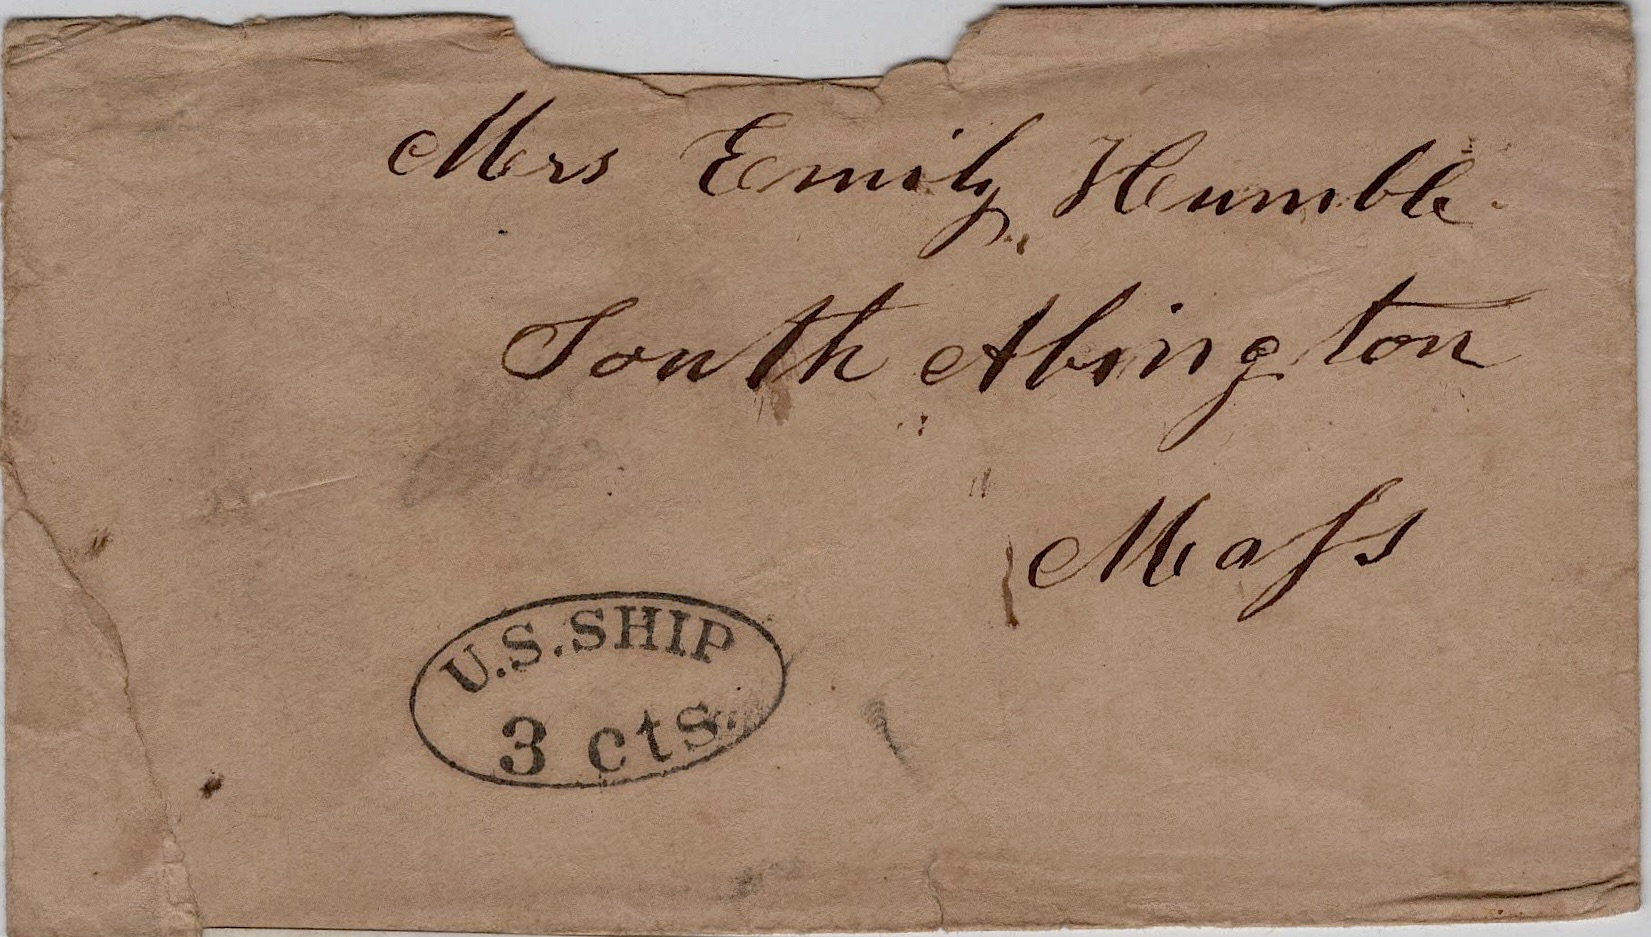 Mrs Emily Humble
South Abington
Mass
U.S. SHIP
3 cts.